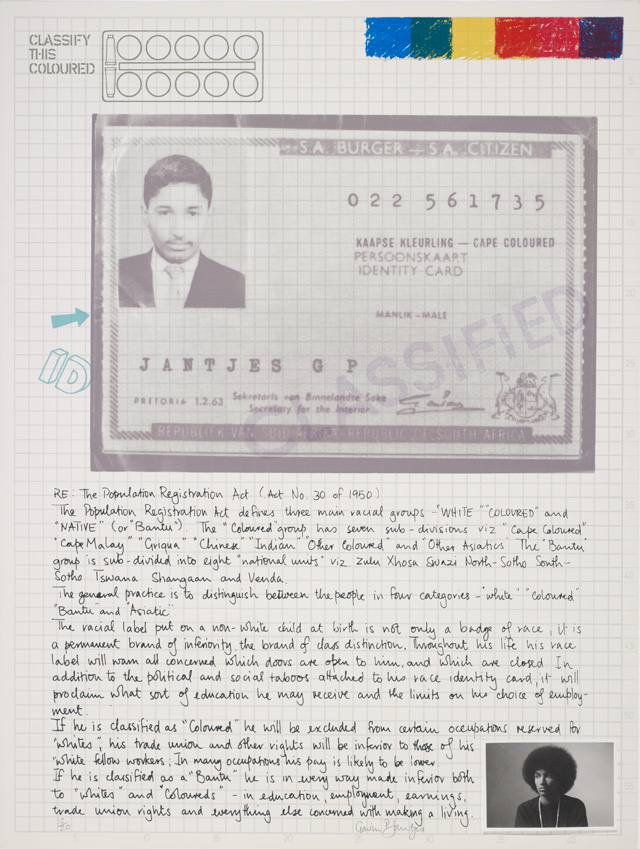 CLASSIFY
THIS
COLOURED
S.A. BURGER — S.A. CITIZEN
022 561735
KAAPSE KLEURLING — CAPE COLOURED
PERSOONSKAART
IDENTITY CARD
MANLIK – MALE
CLASSIFIED
ID
JANTJES G P
PRETORIA 1.2.63
Sekretaris van Binnelandse Sake
Secretary for the Interior
REPUBLIEK VAN SUID-AFRIKA – REPUBLIC OF SOUTH AFRICA
RE: The Population Registration Act (Act No. 30 of 1950)
The Population Registration Act defines three main racial groups – "WHITE" "COLOURED" and
"NATIVE" (or "Bantu"). The "Coloured" group has seven sub-divisions viz "Cape Coloured"
"Cape Malay" "Griqua" "Chinese" "Indian" "Other Coloured" and "Other Asiatics. The "Bantu
group is sub-divided into eight "national units" viz Zulu Xhosa Swazi North-Sotho South-
Sotho Tswana Shangaan and Venda.
The general practice is to distinguish between the people in four categories – "white" "Coloured"
"Bantu" and "Asiatic"
The racial label put on a non-white child at birth is not only a badge of race, it is
a permanent brand of inferiority, the brand of class distinction. Throughout his life his race
label will warn all concerned which doors are open to him, and which are closed. In
addition to the political and social taboos attached to his race identity card, it will
proclaim what sort of education he may receive and the limits on his choice of employ-
ment.
If he is classified as "Coloured" he will be excluded from certain occupations reserved for
"whites"; his trade union and other rights will be inferior to those of his
"white fellow workers; In many occupations his pay is likely to be lower.
If he is classified as a "Bantu" he is in every way made inferior both
to "whites" and "Coloureds" – in education, employment, earnings,
trade union rights and everything else concerned with making a living.